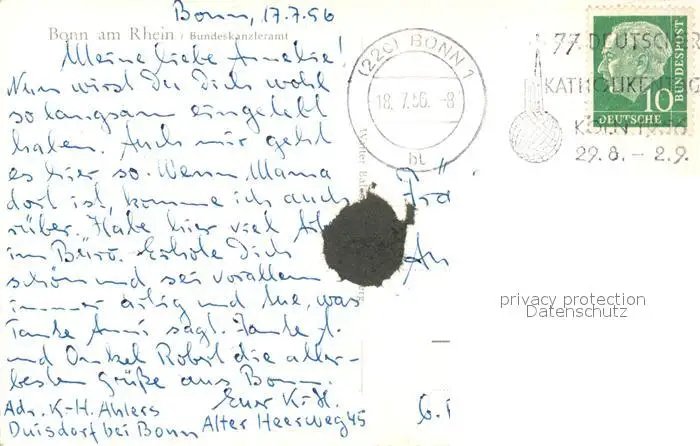 Bonn, 17.7.56
Bonn am Rhein / Bundeskanzleramt
Meine liebe Annelie!
Nun wirst Du Dich wohl
so langsam eingelebt
haben. Auch mir geht
es hier so. Wenn Mama
dort ist, komme ich auch
rüber. Habe hier viel
im Büro. Erhole Dich
schön und sei vorallem
immer artig und tue, was
Tante Anni sagt. Tante A.
und Onkel Robert die aller-
besten Grüße aus Bonn.
Euer K.-H.
Adr. K-H. Ahlers
Duisdorf bei Bonn Alter Heerweg 45
(22c) BONN 1
18.7.56.-8
bt
77. DEUTSCHER
KATHOLIKENTAG
KÖLN 1956
29.8. – 2.9.
DEUTSCHE BUNDESPOST
10
Frä
An
privacy protection
Datenschutz